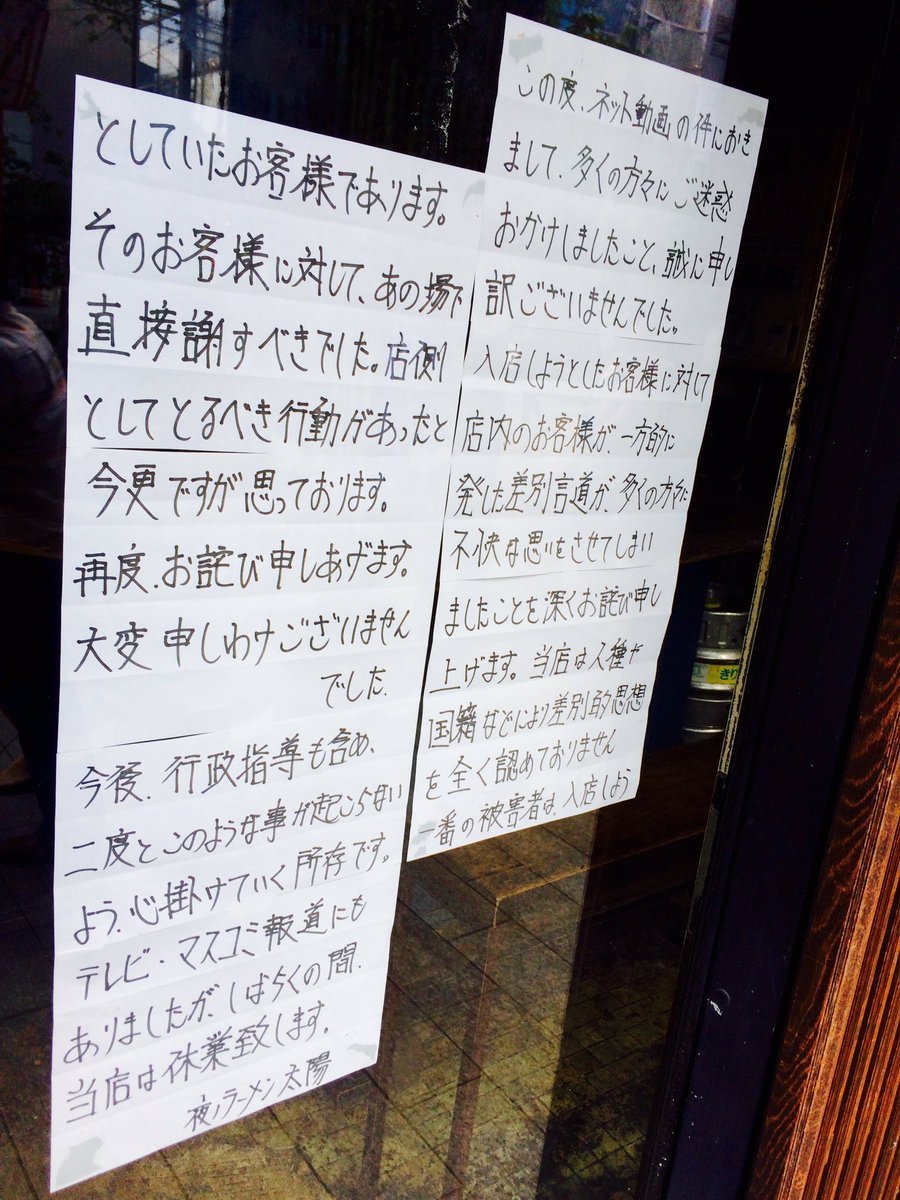 この度、ネット動画の件におき
まして、多くの方々にご迷惑
おかけしましたこと、誠に申し
訳ございませんでした。
入店しようとしたお客様に対して
店内のお客様が、一方的に
発した差別言道が、多くの方々に
不快な思いをさせてしまい
ましたことを深くお詫び申し
上げます。当店は人種や
国籍などにより差別的思想
を全く認めておりません
一番の被害者は、入店しよう
としていたお客様であります。
そのお客様に対して、あの場で
直接謝すべきでした。店側
としてとるべき行動があったと
今更ですが思っております。
再度、お詫び申しあげます。
大変申しわけございません
でした。
今後、行政指導も含め、
二度とこのような事が起こらない
よう、心掛けていく所存です。
テレビ・マスコミ報道にも
ありましたが、しばらくの間、
当店は休業致します。
夜ノラーメン太陽
きり